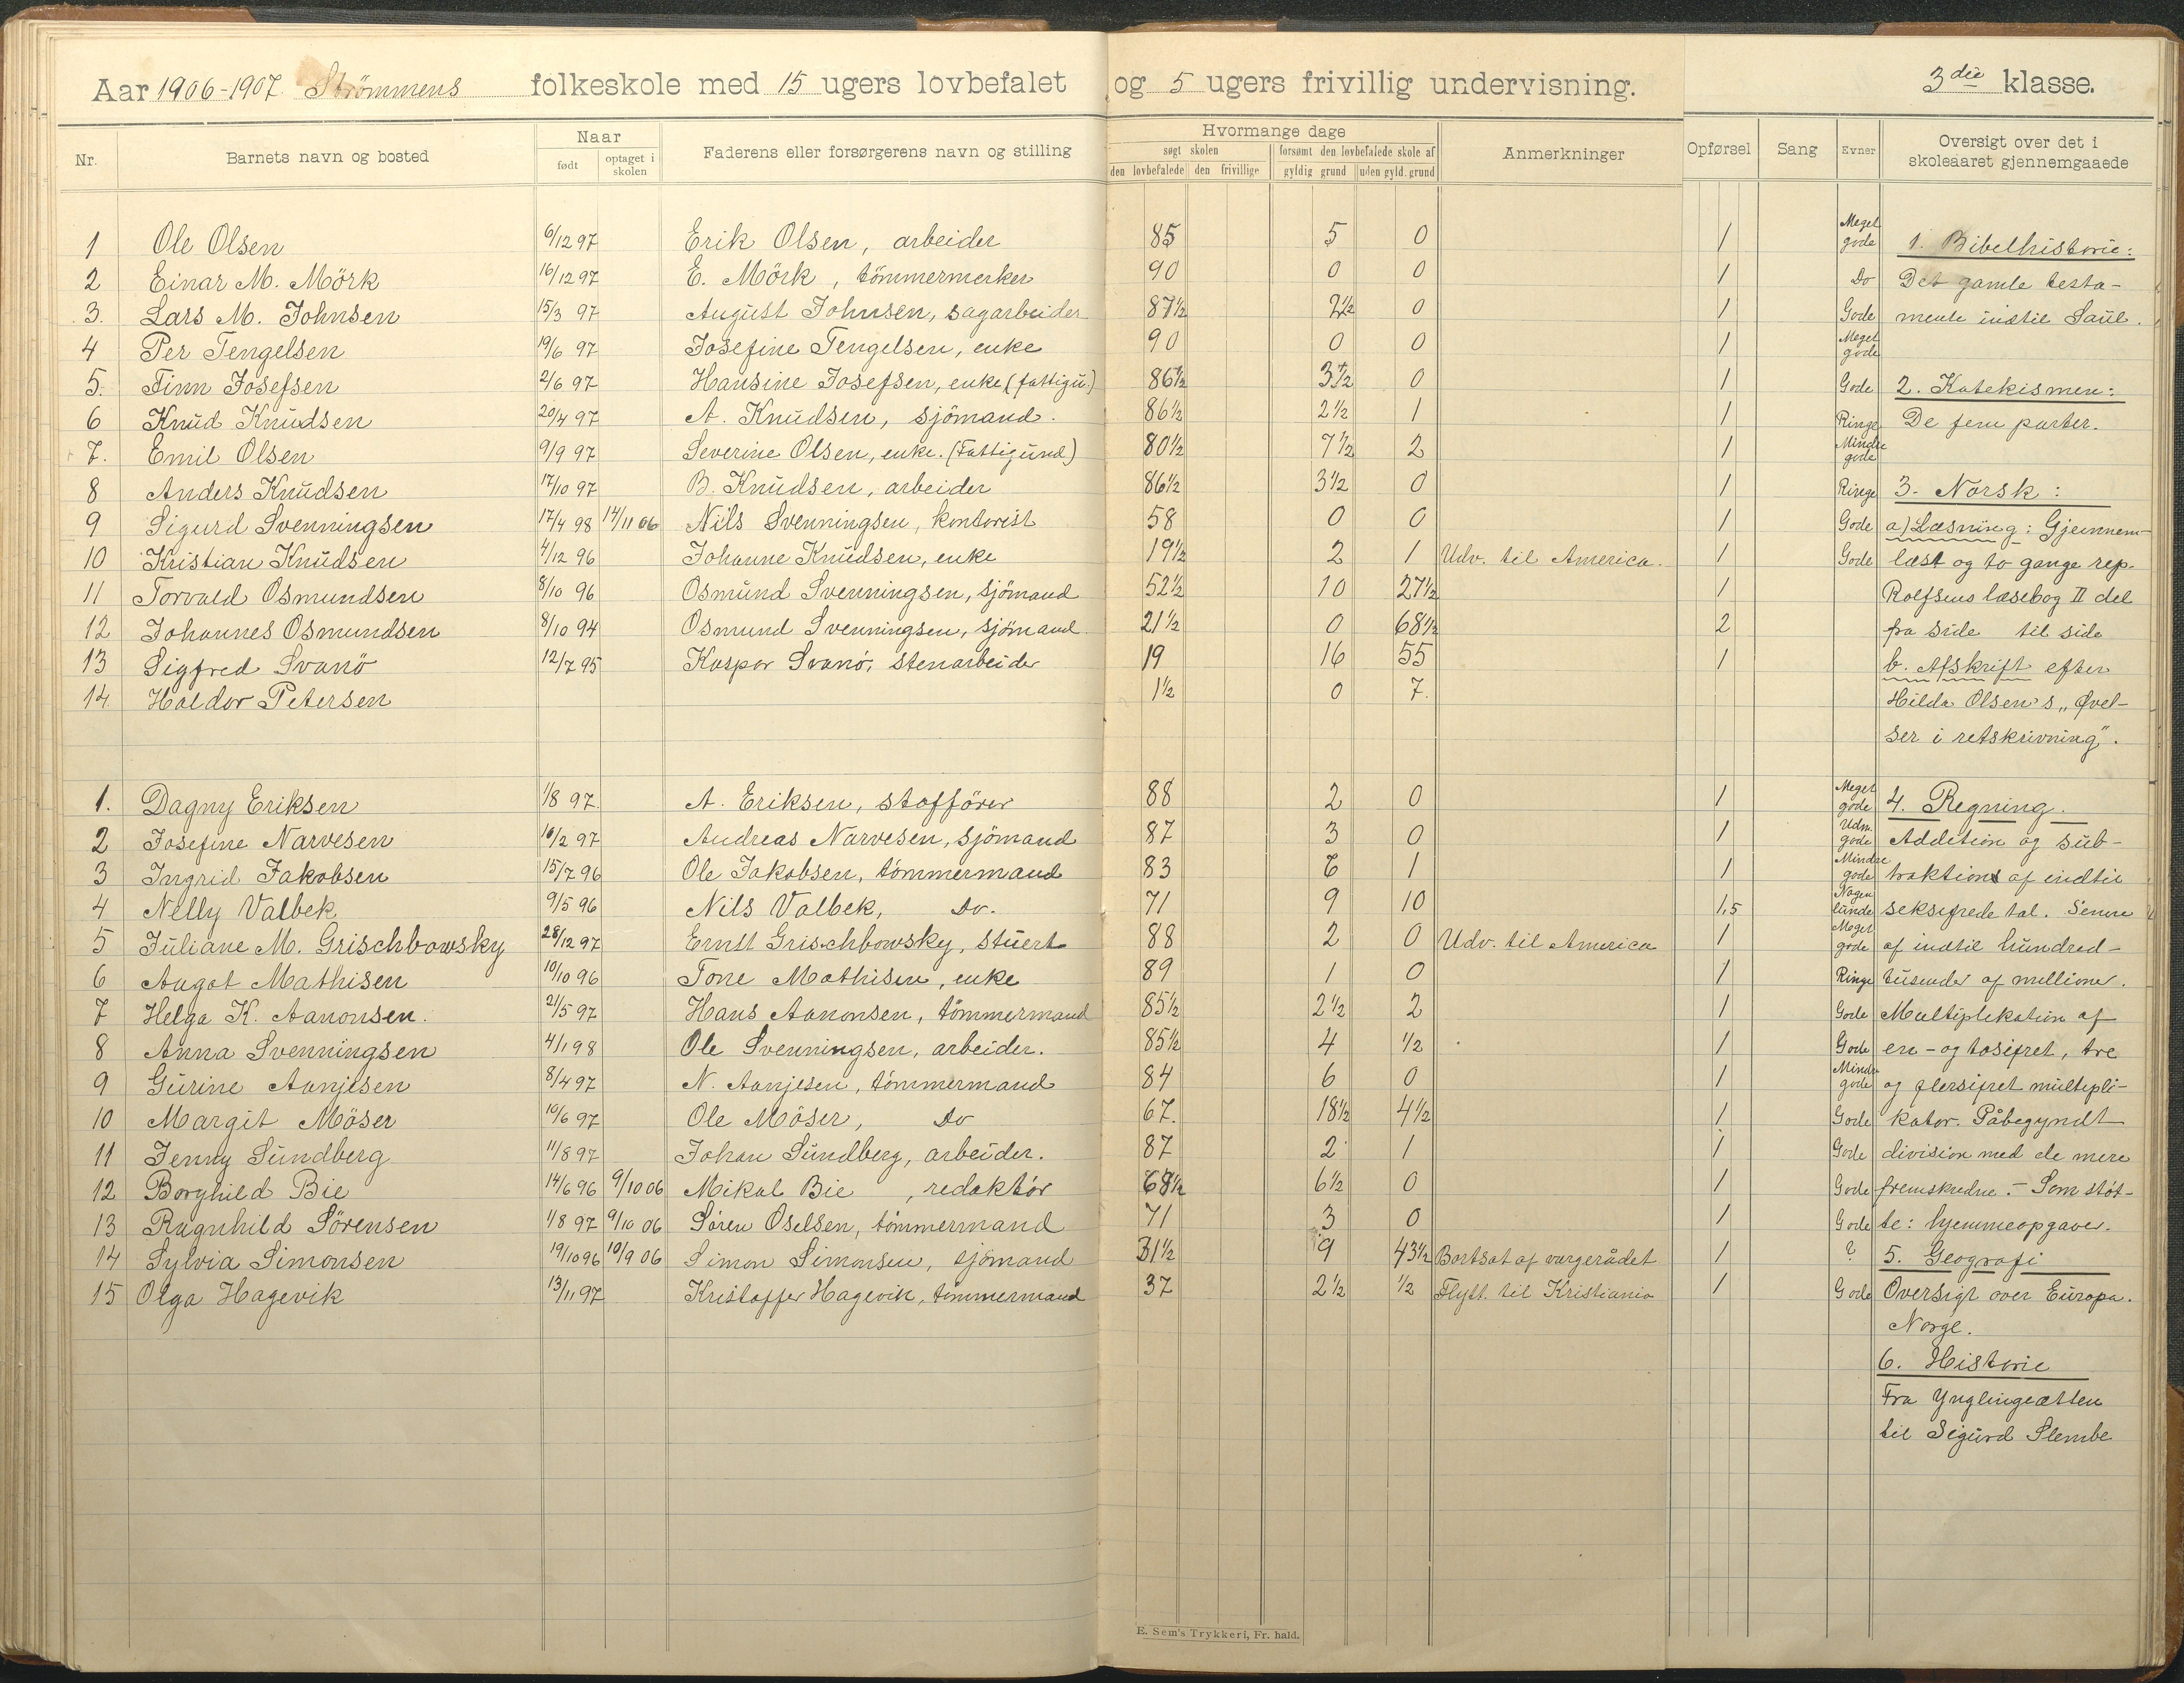 Aar 1906-1907. Strömmens folkeskole med 15 ugers lovbefalet og 5 ugers frivillig undervisning. 3die klasse.
Nr. Barnets navn og bosted Naar født optaget i skolen Faderens eller forsørgerens navn og stilling Hvormange dage søgt skolen den lovbefalede den frivillige forsømt den lovbefalede skole af gyldig grund uden gyld. grund Anmerkninger Opførsel Sang Evner Oversigt over det i skoleaaret gjennemgaaede
1 Ole Olsen 6/12 97 Erik Olsen, arbeider 85 5 0 1 Meget gode 1. Bibelhistorie:
2 Einar M. Mörk 16/12 97 E. Mörk, tömmermerker 90 0 0 1 Do Det gamle testa-
3. Lars M. Johnsen 15/3 97 August Johnsen, sagarbeider 87½ 2½ 0 1 Gode mente indtil Saul.
4 Per Tengelsen 19/6 97 Josefine Tengelsen, enke 90 0 0 1 Meget gode
5. Finn Josefsen 2/6 97 Hansine Josefsen, enke (fattigu.) 86½ 3½ 0 1 Gode 2. Katekismen:
6 Knud Knudsen 20/4 97 A. Knudsen, sjömand. 86½ 2½ 1 1 Ringe De fem parter.
7. Emil Olsen 9/9 97 Severine Olsen, enke. (Fattigund) 80½ 7½ 2 1 Mindre gode
8 Anders Knudsen 17/10 97 B. Knudsen, arbeider 86½ 3½ 0 1 Ringe 3. Norsk:
9 Sigurd Svenningsen 17/4 98 14/11 06 Nils Svenningsen, kontorist 58 0 0 1 Gode a) Læsning: Gjennem-
10 Kristian Knudsen 4/12 96 Johanne Knudsen, enke 19½ 2 1 Udv. til America. 1 Gode læst og to gange rep.
11 Torvald Osmundsen 8/10 96 Osmund Svenningsen, sjömand 52½ 10 27½ 1 Rolfsens læsebog II del
12 Johannes Osmundsen 8/10 94 Osmund Svenningsen, sjömand. 21½ 0 68½ 2 fra side til side
13 Sigfred Svanö 12/7 95 Kaspar Svanö, stenarbeider 19 16 55 1 b. Afskrift efter
14 Haldor Petersen 1½ 0 7. Hilda Olsen's „Øvel-
ser i retskrivning".
1. Dagny Eriksen 1/8 97. A. Eriksen, stafförer 88 2 0 1 Meget gode 4. Regning.
2 Josefine Narvesen 16/2 97 Andreas Narvesen, sjömand 87 3 0 1 Udm. gode Addition og sub-
3 Ingrid Jakobsen 15/7 96 Ole Jakobsen, tömmermand 83 6 1 1 Mindre gode traktion af indtil
4 Nelly Valbek 9/5 96 Nils Valbek, Do. 71 9 10 1,5 Nogen lunde seksifrede tal. Senere
5 Juliane M. Grischbowsky 28/12 97 Ernst Grischbowsky, stuert 88 2 0 Udv. til America 1 Meget gode af indtil hundred-
6 Aagot Mathisen 10/10 96 Tone Mathisen, enke 89 1 0 1 Ringe tusender af millioner.
7 Helga K. Aanonsen. 21/5 97 Hans Aanonsen, tömmermand 85½ 2½ 2 1 Gode Multiplikation af
8 Anna Svenningsen 4/1 98 Ole Svenningsen, arbeider. 85½ 4 ½ 1 Gode en- og tosifret, tre
9 Gurine Aanjesen 8/4 97 N. Aanjesen, tömmermand 84 6 0 1 Mindre gode og flersifret multipli-
10 Margit Möser 10/6 97 Ole Möser, Do 67. 18½ 4½ 1 Gode kator. Påbegyndt
11 Jenny Sundberg 11/8 97 Johan Sundberg, arbeider. 87 2 1 1 Gode division med de mere
12 Borghild Bie 14/6 96 9/10 06 Mikal Bie, redaktör 68½ 6½ 0 1 Gode fremskredne. – Som støt-
13 Ragnhild Sörensen 1/8 97 9/10 06 Sören Oselsen, tömmermand 71 3 0 1 Gode te: hjemmeopgaver.
14 Sylvia Simonsen 19/10 96 10/9 06 Simon Simonsen, sjömand 31½ 9 43½ Bortsat af vergerådet 1 ? 5. Geografi
15 Olga Hagevik 13/11 97 Kristoffer Hagevik, tömmermand 37 2½ ½ Flytt. til Kristiania 1 Gode Oversigt over Europa.
Norge.
6. Historie
Fra Ynglingeætten
til Sigurd Slembe
E. Sem's Trykkeri, Fr. hald.